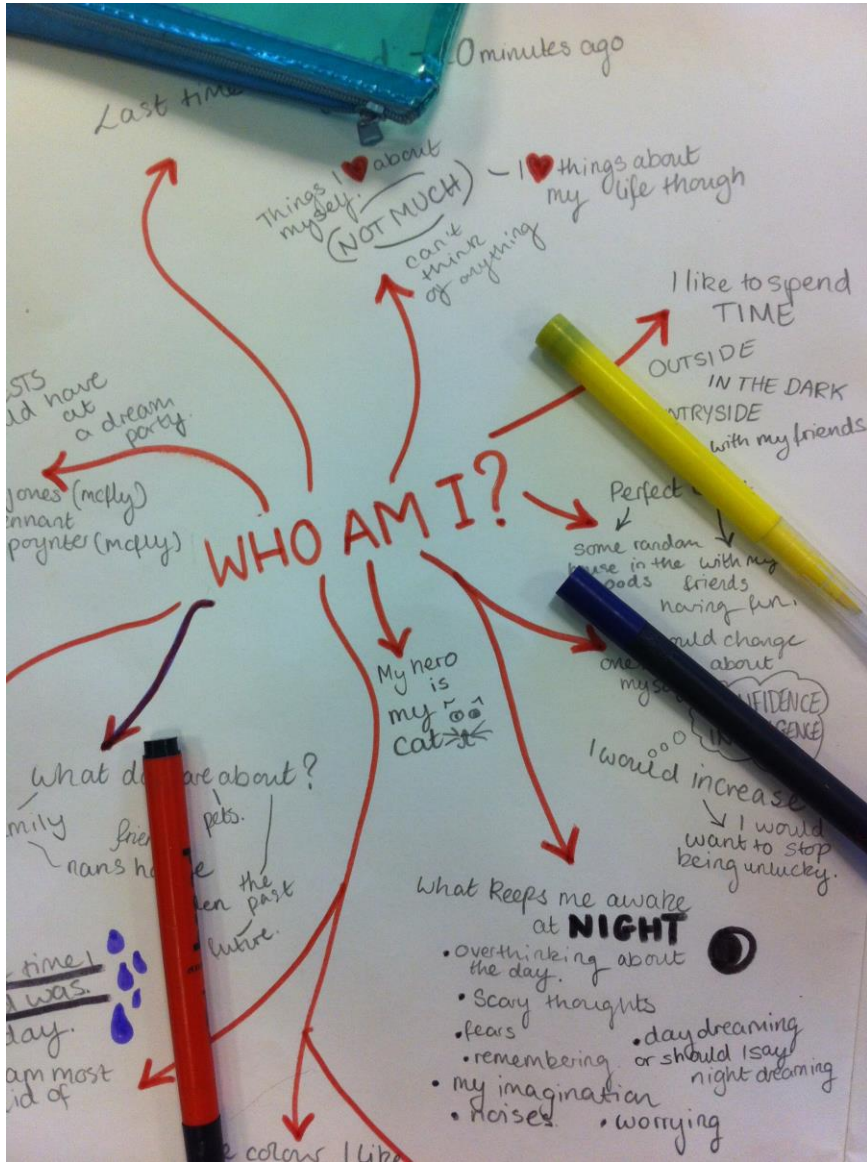 Last time
0 minutes ago
Things I ❤ about
myself.
(NOT MUCH)
can't
think
of anything
– I ❤ things about
my life though
I like to spend
TIME
OUTSIDE
IN THE DARK
NTRYSIDE
with my friends
STS
ld have
at
a dream
party.
Jones (mcfly)
ennant
poynter (mcfly)
WHO AM I?
Perfect
some random
in the
with my
friends
having fun.
ould change
one
about
FIDENCE
I would increase
I would
want to stop
being unlucky.
My hero
is
my
cat
What do
about?
mily
pets.
nans
the
past
future.
What keeps me awake
at NIGHT
• overthinking about
the day.
• Scary thoughts
• fears
• remembering
• my imagination
• noises.
• day dreaming
or should I say
night dreaming
• worrying
time I
d was.
day.
am most
id of
colour I like